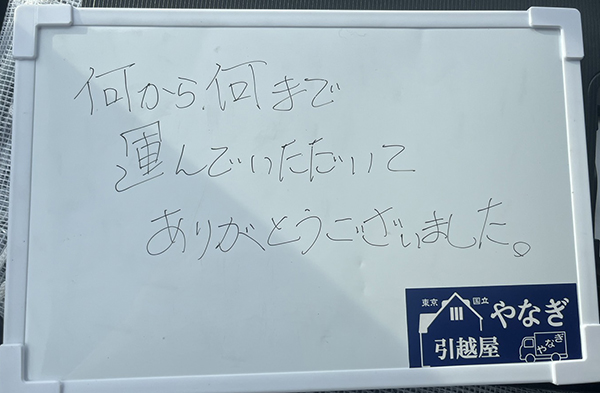 何から何まで
運んでいただいて
ありがとうございました。
東京 国立 やなぎ
引越屋 やなぎ